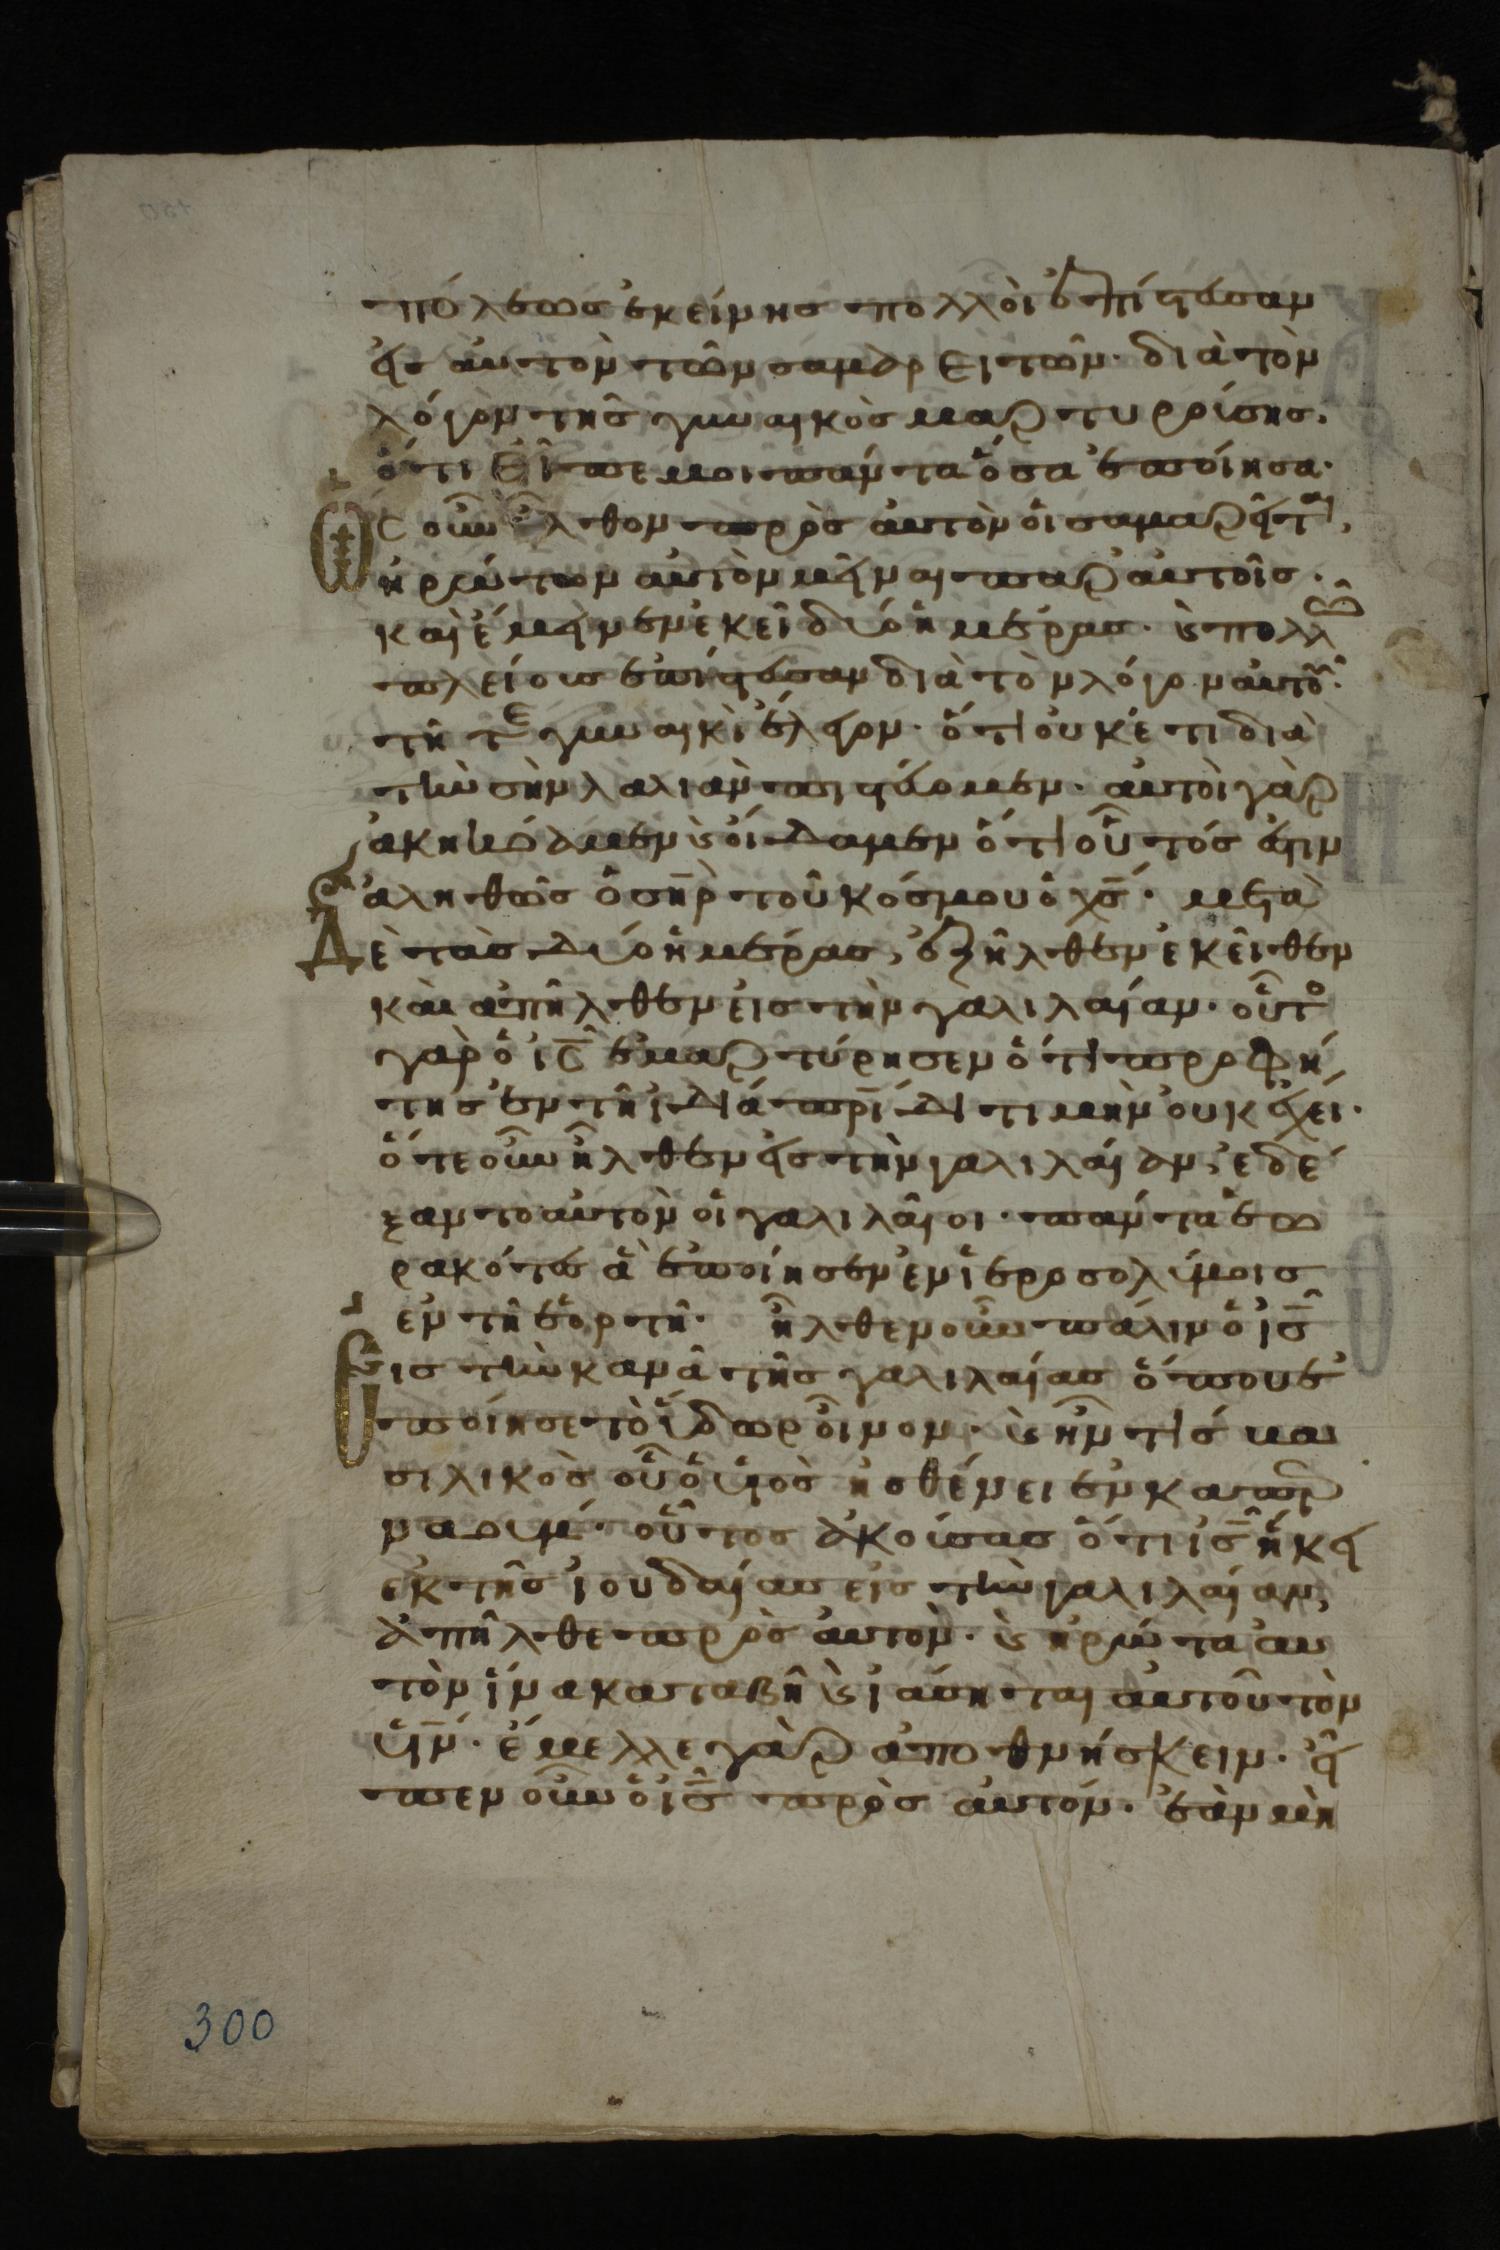 πόλεως ἐκείνης πολλοὶ ἐπίστευσαν
εἰς αὐτὸν τῶν σαμαρειτῶν· διὰ τὸν
λόγον τῆς γυναικὸς μαρτυρούσης,
ὅτι εἶπε μοι πάντα ὅσα ἐποίησα·
Ὡς οὖν ἦλθον πρὸς αὐτὸν οἱ σαμαρεῖται,
ἠρώτων αὐτὸν μεῖναι παρ αὐτοῖς·
καὶ ἔμεινεν ἐκεῖ δύο ἡμέρας· καὶ πολλῶ
πλείους ἐπίστευσαν διὰ τὸν λόγον αὐτοῦ·
τῆ τε γυναικὶ ἔλεγον· ὅτι οὐκέτι διὰ
τὴν σὴν λαλιὰν πιστεύομεν· αὐτοὶ γὰρ
ἀκηκόαμεν καὶ οἴδαμεν ὅτι οὗτός ἐστιν
ἀληθῶς ὁ σηρ τοῦ κόσμου ὁ χς· μετὰ
Δὲ τὰς δύο ἡμέρας, ἐξῆλθεν ἐκεῖθεν
καὶ ἀπῆλθεν εἰς τὴν γαλιλαίαν· αὐτὸ
γὰρ ὁ ις ἐμαρτύρησεν ὅτι προφή
της ἐν τῆ ἰδία πρίδι τιμὴν οὐκ ἔχει·
ὅτε οὖν ἦλθεν εἰς τὴν γαλιλαίαν, ἐδέ
ξαντο αὐτὸν οἱ γαλιλαῖοι· πάντα ἑω
ρακότες ἃ ἐποίησεν ἐν ἱεροσολύμοις
ἐν τῆ ἑορτῆ· ἦλθεν οὖν πάλιν ὁ ις
Εἰς τὴν κανᾶ τῆς γαλιλαίας ὅπου ἐ
ποίησε τὸ ὕδωρ οἶνον· καὶ ἦν τίς βα
σιλικὸς οὗ ὁ υἱὸς ἠσθένει ἐν καπερ
ναούμ· οὗτος ἀκούσας ὅτι ις ἥκει
ἐκ τῆς ἰουδαίας εἰς τὴν γαλιλαίαν,
ἀπῆλθε πρὸς αὐτὸν· καὶ ἠρώτα αὐ
τὸν ἵνα καταβῆ καὶ ἰάσηται αὐτοῦ τὸν
υἱν· ἔμελλε γὰρ ἀποθνήσκειν· εἶ
πεν οὖν ὁ ις πρὸς αὐτόν· ἐὰν μὴ
300